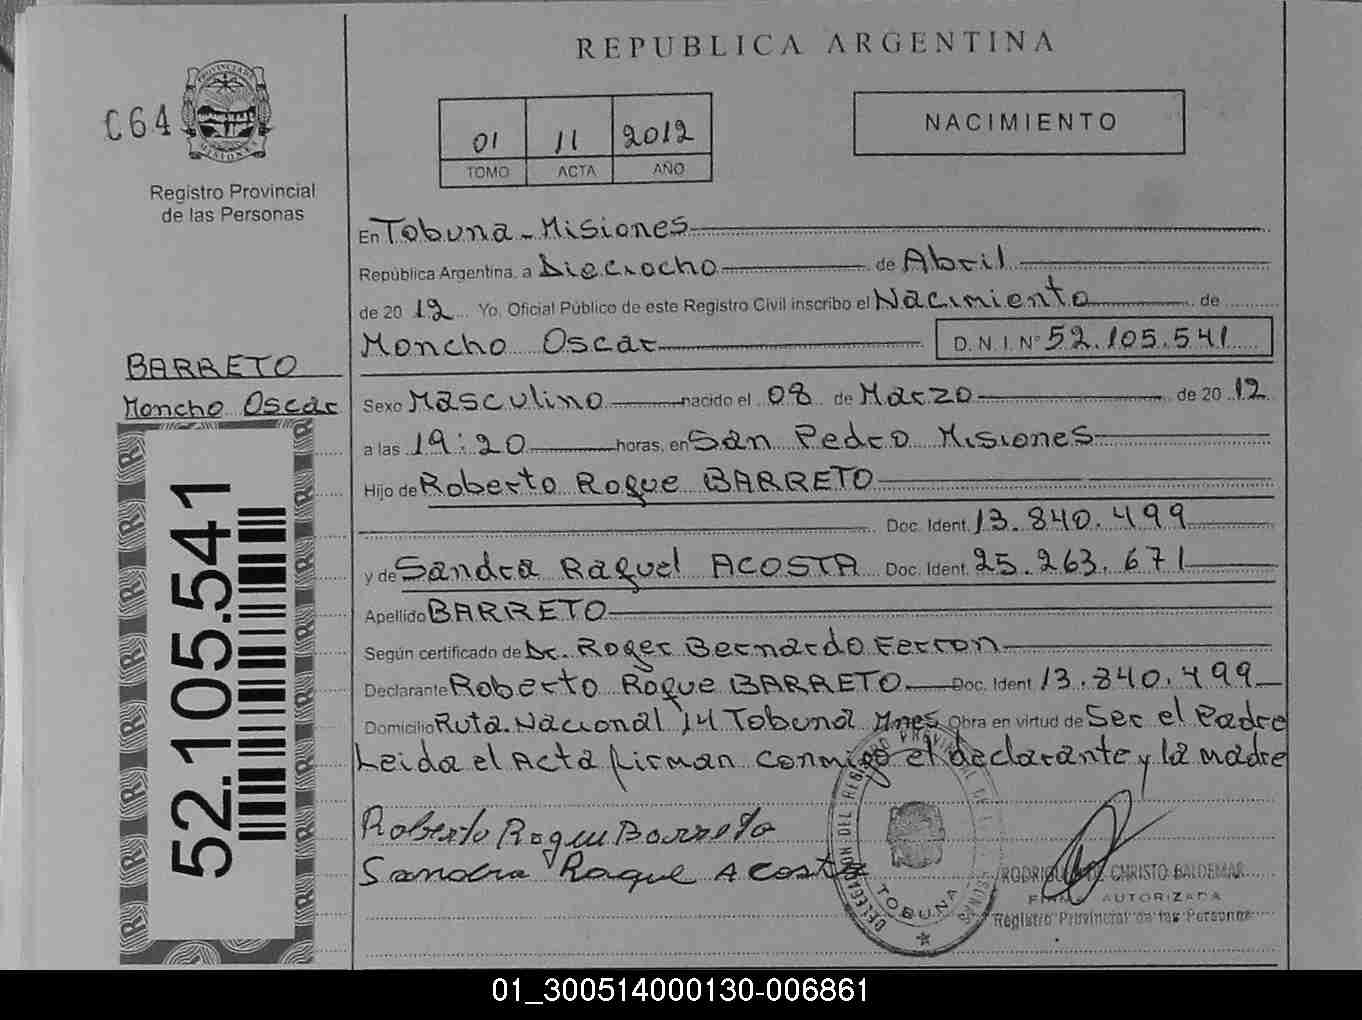 REPUBLICA ARGENTINA
C64
PROVINCIA DE MISIONES
Registro Provincial
de las Personas
01 11 2012
TOMO ACTA AÑO
NACIMIENTO
En Tobuna - Misiones
República Argentina, a Dieciocho de Abril
de 2012 Yo, Oficial Público de este Registro Civil inscribo el Nacimiento de
Moncho Oscar D.N.I. Nº 52.105.541
BARRETO
Moncho Oscar
52.105.541
Sexo Masculino nacido el 08 de Marzo de 2012
a las 19:20 horas, en San Pedro Misiones
Hijo de Roberto Roque BARRETO
Doc. Ident. 13.840.499
y de Sandra Raquel ACOSTA Doc. Ident. 25.263.671
Apellido BARRETO
Según certificado de Dr. Roger Bernardo Ferron
Declarante Roberto Roque BARRETO Doc. Ident 13.840.499
Domicilio Ruta Nacional 14 Tobuna Mnes Obra en virtud de Ser el Padre
Leida el Acta firman conmigo el declarante y la madre
Roberto Roque Barreto
Sandra Raquel Acosta
DELEGACION DEL REGISTRO PROVINCIAL DE
TOBUNA
CHRISTO BALDEMAR
AUTORIZADA
Registro Provincial de las Personas
01_300514000130-006861